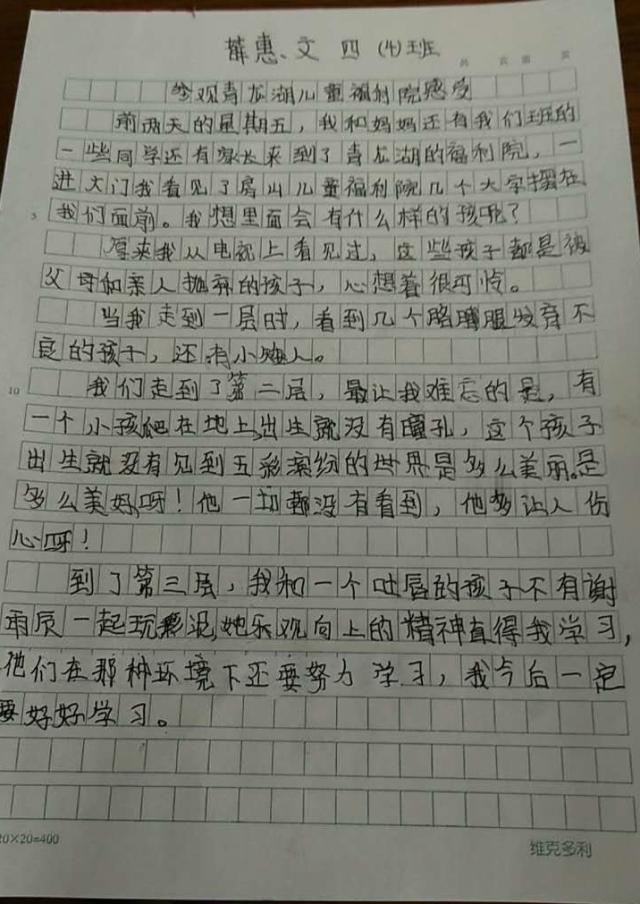 薛惠文 四(4)班
共 页 第 页
参观青龙湖儿童福利院感受
前两天的星期五，我和妈妈还有我们班的
一些同学还有家长来到了青龙湖的福利院，一
进大门我看见了房山儿童福利院几个大字摆在
5 我们面前。我想里面会有什么样的孩呢？
原来我从电视上看见过，这些孩子都是被
父母和亲人抛弃的孩子，心想着很可怜。
当我走到一层时，看到几个胳膊腿发育不
良的孩子，还有小矮人。
10 我们走到了第二层，最让我难忘的是，有
一个小孩爬在地上,出生就没有瞳孔，这个孩子
出生就没有见到五彩缤纷的世界是多么美丽。是
多么美好呀！他一切都没有看到，他多让人伤
心呀！
到了第三层，我和一个吐唇的孩子不有谢
雨辰一起玩,她乐观向上的精神直得我学习，
他们在那种环境下还要努力学习，我今后一定
要好好学习。
20×20=400
维克多利